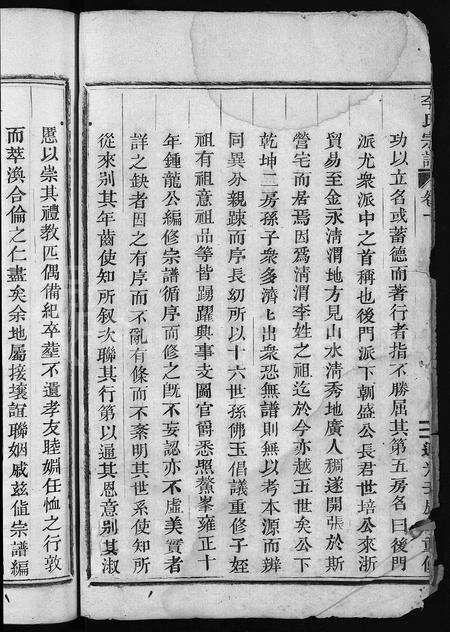 李氏宗譜
卷一
功以立名或蓄德而著行者指不勝屈其第五房名曰後門
派尤衆派中之首稱也後門派下朝盛公長君世培公來浙
貿易至金永清渭地方見山水清秀地廣人稠遂開張於斯
營宅而居焉因爲清渭李姓之祖迄於今越五世矣公下
乾坤二房孫子衆多濟匕出衆恐無譜則無以考本源而辨
同異分親踈而序長幼所以十六世孫佛玉倡議重修子姪
祖有祖意祖品等皆踢躍興事支圖官爵悉照鰲峯雍正十
年鍾龍公編修宗譜循序而修之旣不妄認亦不虛美實者
詳之缺者因之有序而不亂有條而不紊明其世系使知所
從來别其年齒使知所叙次聯其行第以通其恩意别其淑
慝以崇其禮教匹偶備紀卒塟不遺孝友睦婣任恤之行敦
而萃渙合倫之仁盡矣余地屬接壤誼聯姻戚兹值宗譜編